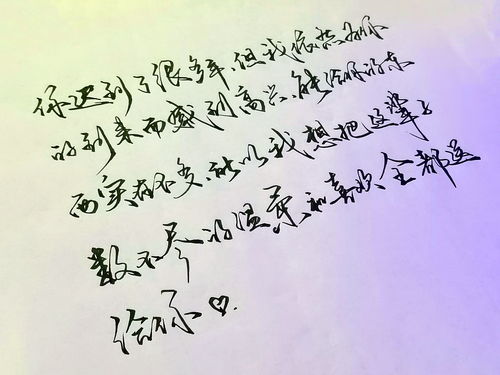 你迟到了很多年,但我依然为你
的到来而感到高兴.能给你的东
西实在不多,所以我想把这辈子
数不尽的温柔和喜欢,全都送
给你♡.